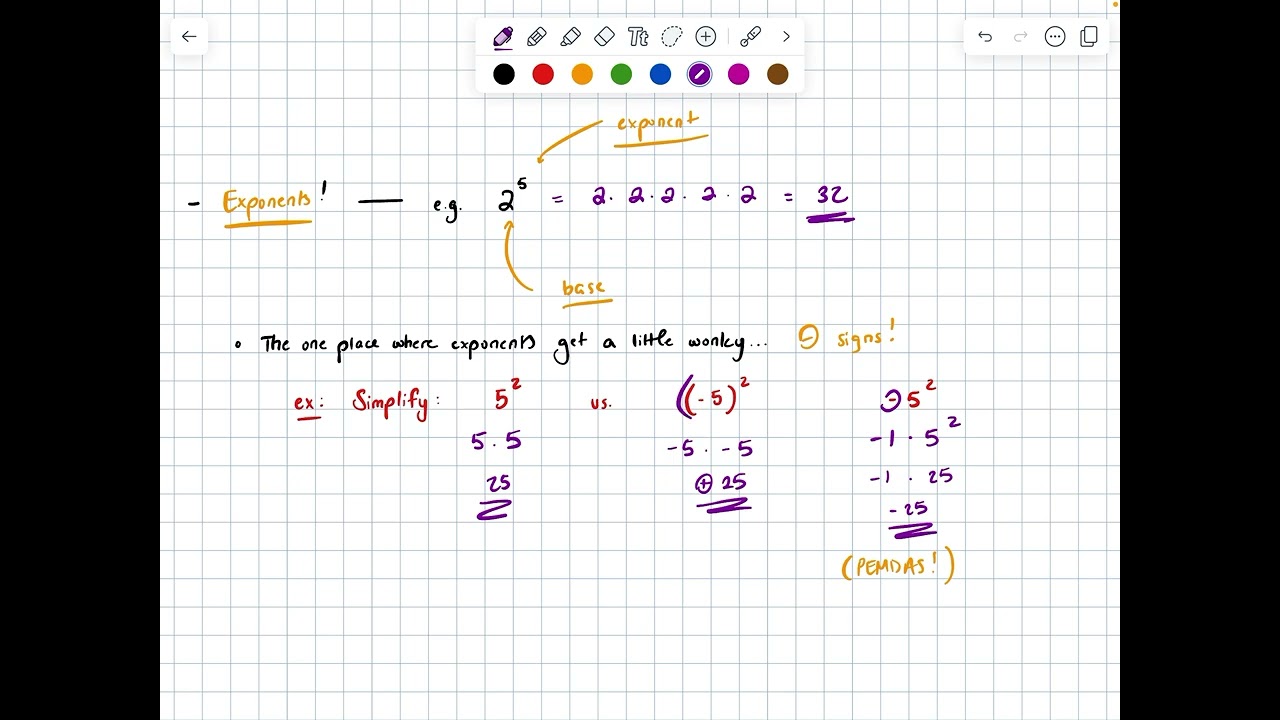 Tt
exponent
- Exponents! — e.g. 2^5 = 2. 2. 2. 2. 2 = 32
base
• The one place where exponents get a little wonky... ⊖ signs!
ex: Simplify: 5^2 vs. ((-5)^2 -5^2
5.5 -5 . -5 -1 . 5^2
25 ⊕ 25 -1 . 25
-25
(PEMDAS!)